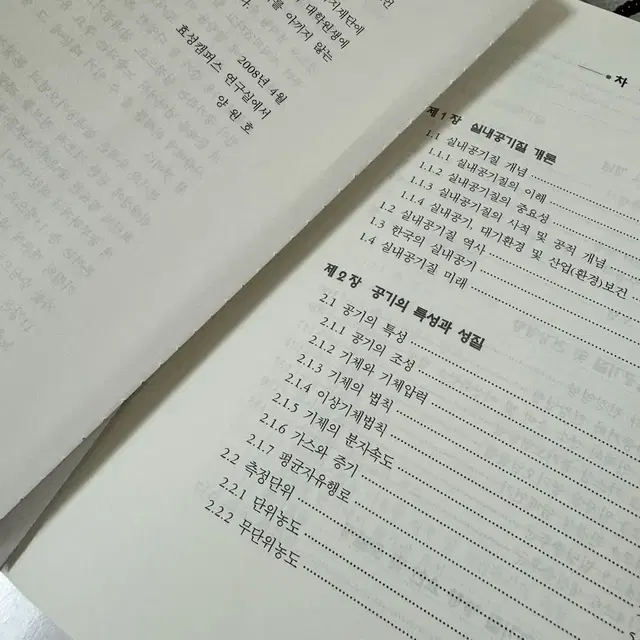 지재단에
대학원생에
을 아끼지 않는
2008년 4월
효성캠퍼스 연구실에서
양 원 호
차
제1장 실내공기질 개론
1.1 실내공기질 개념
1.1.1 실내공기질의 이해
1.1.2 실내공기질의 중요성
1.1.3 실내공기질의 사적 및 공적 개념
1.1.4 실내공기, 대기환경 및 산업(환경)보건
1.2 실내공기질 역사
1.3 한국의 실내공기
1.4 실내공기질 미래
제2장 공기의 특성과 성질
2.1 공기의 특성
2.1.1 공기의 조성
2.1.2 기체와 기체압력
2.1.3 기체의 법칙
2.1.4 이상기체법칙
2.1.5 기체의 분자속도
2.1.6 가스와 증기
2.1.7 평균자유행로
2.2 측정단위
2.2.1 단위농도
2.2.2 무단위농도